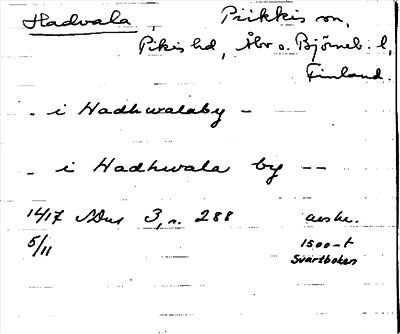 Hadvala, Piikkis sn,
Pikis hd, Åbo o. Björneb. l,
Finland.
- i Hadhwalaby -
- i Hadhwala by --
1417 3, n. 288 avskr.
5/11 1500-t
Svartboken